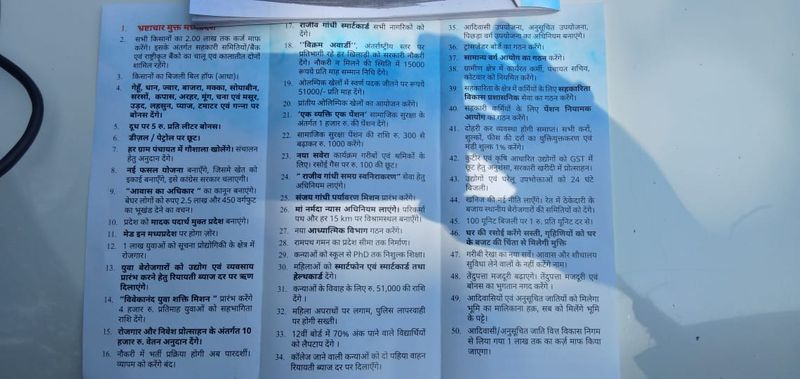 1. भ्रष्टाचार मुक्त मध्यप्रदेश
2. सभी किसानों का 2.00 लाख तक कर्ज माफ
करेंगे। इसके अंतर्गत सहकारी समितियों/बैंक
एवं राष्ट्रीकृत बैंकों का चालू एवं कालातीत दोनों
शामिल रहेंगे।
3. किसानों का बिजली बिल हॉफ (आधा)।
4. गेहूँ, धान, ज्वार, बाजरा, मक्का, सोयाबीन,
सरसों, कपास, अरहर, मूंग, चना एवं मसूर,
उड़द, लहसुन, प्याज, टमाटर एवं गन्ना पर
बोनस देंगे।
5. दूध पर 5 रु. प्रति लीटर बोनस।
6. डीज़ल / पेट्रोल पर छूट।
7. हर ग्राम पंचायत में गौशाला खोलेंगे। संचालन
हेतु अनुदान देंगे।
8. नई फसल योजना बनाएँगे, जिसमे खेत को
इकाई बनाएँगे, इसे कांग्रेस सरकार चलाएगी।
9. "आवास का अधिकार " का कानून बनाएंगे।
बेघर लोगों को रुपए 2.5 लाख और 450 वर्गफुट
का भूखंड देने का वचन।
10. प्रदेश को मादक पदार्थ मुक्त प्रदेश बनाएंगे।
11. मेड इन मध्यप्रदेश पर होगा ज़ोर।
12. 1 लाख युवाओं को सूचना प्रौद्योगिकी के क्षेत्र में
रोजगार।
13. युवा बेरोजगारों को उद्योग एवं व्यवसाय
प्रारंभ करने हेतु रियायती ब्याज दर पर ऋण
दिलाएंगे।
14. "विवेकानंद युवा शक्ति मिशन " प्रारंभ करेंगे
4 हजार रु. प्रतिमाह युवाओं को सहभागिता
राशि देंगे।
15. रोजगार और निवेश प्रोत्साहन के अंतर्गत 10
हजार रु. वेतन अनुदान देंगे।
16. नौकरी में भर्ती प्रक्रिया होगी अब पारदर्शी।
व्यापम को करेंगे बंद।
17. राजीव गांधी स्मार्टकार्ड सभी नागरिकों को
देंगे।
18. "विक्रम अवार्डी", अंतर्राष्ट्रीय स्तर पर
प्रतिभागी रहे हर खिलाड़ी को सरकारी नौकरी
देंगे। नौकरी न मिलने की स्थिति में 15000
रूपये प्रति माह सम्मान निधि देंगे।
19. ओलम्पिक खेलों में स्वर्ण पदक जीतने पर रूपये
51000/- प्रति माह देंगे।
20. प्रांतीय ओलिम्पिक खेलों का आयोजन करेंगे।
21. 'एक व्यक्ति एक पेंशन' सामाजिक सुरक्षा के
अंतर्गत 1 हजार रु. की पेंशन देंगे।
22. सामाजिक सुरक्षा पेंशन की राशि रु. 300 से
बढ़ाकर रु. 1000 करेंगे।
23. नया सवेरा कार्यक्रम गरीबों एवं श्रमिकों के
लिए। रसोई गैस पर रु. 100 की छूट।
24. " राजीव गांधी समग्र स्वनिराकरण" सेवा हेतु
अधिनियम लाएंगे।
25. संजय गांधी पर्यावरण मिशन प्रारंभ करेंगे।
26. मां नर्मदा न्यास अधिनियम लाएंगे। परिक्रमा
पथ और हर 15 km पर विश्रामस्थल बनाएँगे।
27. नया आध्यात्मिक विभाग गठन करेंगे।
28. रामपथ गमन का प्रदेश सीमा तक निर्माण।
29. कन्याओं को स्कूल से PhD तक निशुल्क शिक्षा।
30. महिलाओं को स्मार्टफोन एवं स्मार्टकार्ड तथा
हेल्थकार्ड देंगे।
31. कन्याओं के विवाह के लिए रु. 51,000 की राशि
देंगे ।
32. महिला अपराधों पर लगाम, पुलिस लापरवाही
पर होगी सख्ती।
33. 12वी बोर्ड में 70% अंक पाने वाले विद्यार्थियों
को लैपटाप देंगे ।
34. कॉलेज जाने वाली कन्याओं को दो पहिया वाहन
रियायती ब्याज दर पर दिलाएँगे।
35. आदिवासी उपयोजना, अनुसूचित उपयोजना,
पिछड़ा वर्ग उपयोजना का अधिनियम बनाएंगे।
36. ट्रांसजेंडर बोर्ड का गठन करेंगे।
37. सामान्य वर्ग आयोग का गठन करेंगे।
38. ग्रामीण क्षेत्र में कार्यरत कर्मी, पंचायत सचिव,
कोटवार को नियमित करेंगे।
39. सहकारिता के क्षेत्र में कर्मियों के लिए सहकारिता
विकास प्रशासनिक सेवा का गठन करेंगे।
40. सहकारी कर्मियों के लिए पेंशन नियामक
आयोग का गठन करेंगे।
41. दोहरी कर व्यवस्था होगी समाप्त। सभी करों,
शुल्कों, फीस की दरों का युक्तियुक्तकरण एवं
मंडी शुल्क 1% करेंगे।
42. कुटीर एवं कृषि आधारित उद्योगों को GST में
छूट हेतु अनुशंसा, सरकारी खरीदी में प्रोत्साहन।
43. उद्योगों एवं घरेलू उपभोक्ताओं को 24 घंटे
बिजली।
44. खनिज की नई नीति लाएँगे। रेत में ठेकेदारी के
बजाय स्थानीय बेरोजगारों की समितियों को देंगे।
45. 100 यूनिट बिजली पर 1 रु. प्रति यूनिट दर से।
46. घर की रसोई करेंगे सस्ती, गृहिणियों को घर
के बजट की चिंता से मिलेगी मुक्ति
47. गरीबी रेखा का नया सर्वे। आवास और शौचालय
सुविधा लेने वालों के नहीं कटेंगे नाम।
48. तेंदुपत्ता मजदूरी बढ़ाएगे। तेंदुपत्ता मजदूरी एवं
बोनस का भुगतान नगद करेंगे ।
49. आदिवासियों एवं अनुसूचित जातियों को मिलेगा
भूमि का मालिकाना हक़, सब को मिलेंगे भूमि
के पट्टे।
50. आदिवासी/अनुसूचित जाति वित्त विकास निगम
से लिया गया 1 लाख तक का कर्ज़ माफ किया
जाएगा।